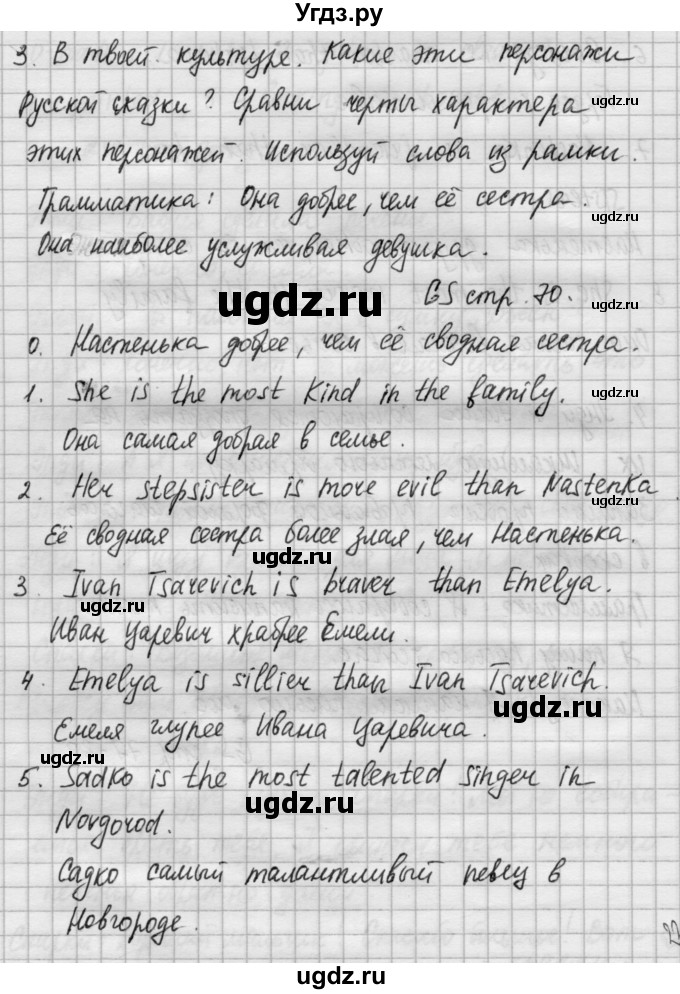 Угдз.ру
3. В твоей культуре. Какие эти персонажи
Русской сказки? Сравни черты характера
ugdz.ru
этих персонажей. Используй слова из рамки.
ugdz.ru
Грамматика: Она добрее, чем её сестра.
ugdz.ru
Она наиболее услужливая девушка.
ugdz.ru GS стр. 70.
ugdz.ru
0. Настенька добрее, чем её сводная сестра.
1. She is the most kind in the family.
ugdz.ru
Она самая добрая в семье.
ugdz.ru
2. Her stepsister is more evil than Nastenka.
Её сводная сестра более злая, чем Настенька.
ugdz.ru
3. Ivan Tsarevich is braver than Emelya.
ugdz.ru
Иван Царевич храбрее Емели.
4. Emelya is sillier than Ivan Tsarevich.
ugdz.ru
Емеля глупее Ивана Царевича.
ugdz.ru
5. Sadko is the most talented singer in
ugdz.ru
Novgorod.
Садко самый талантливый певец в
ugdz.ru
Новгороде.
ugdz.ru